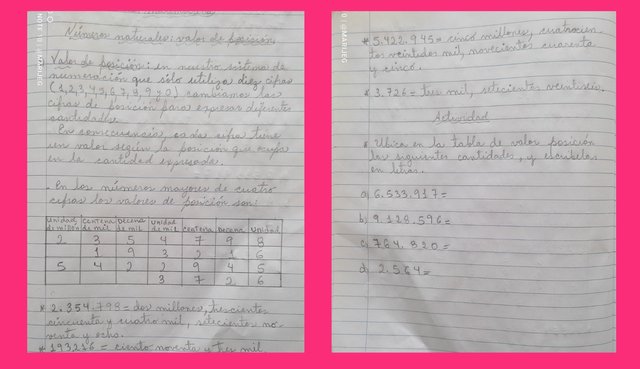 Números naturales: valor de posición.
Valor de posición: en nuestro sistema de
numeración que sólo utiliza diez cifras
(1,2,3,4,5,6,7,8,9 y 0) cambiamos las
cifras de posición para expresar diferentes
cantidades.
En consecuencia, cada cifra tiene
un valor según la posición que ocupa
en la cantidad expresada.
- En los números mayores de cuatro
cifras los valores de posición son:
unidad de millón centena de mil Decena de mil unidad de mil centena Decena unidad
2 3 5 4 7 9 8
1 9 3 2 1 6
5 4 2 2 9 4 5
3 7 2 6
* 2.354.798 = dos millones, trescientos
cincuenta y cuatro mil, setecientos no-
venta y ocho.
* 193216 = ciento noventa y tres mil,
* 5.422.945 = cinco millones, cuatrocien-
tos veintidos mil, novecientos cuarenta
y cinco.
* 3.726 = tres mil, setecientos veintiseis.
Actividad
* Ubica en la tabla de valor posición
las siguientes cantidades, y escribelas
en letras.
a) 6.533.917=
b) 9.128.596=
c) 764.820=
d) 2.564=